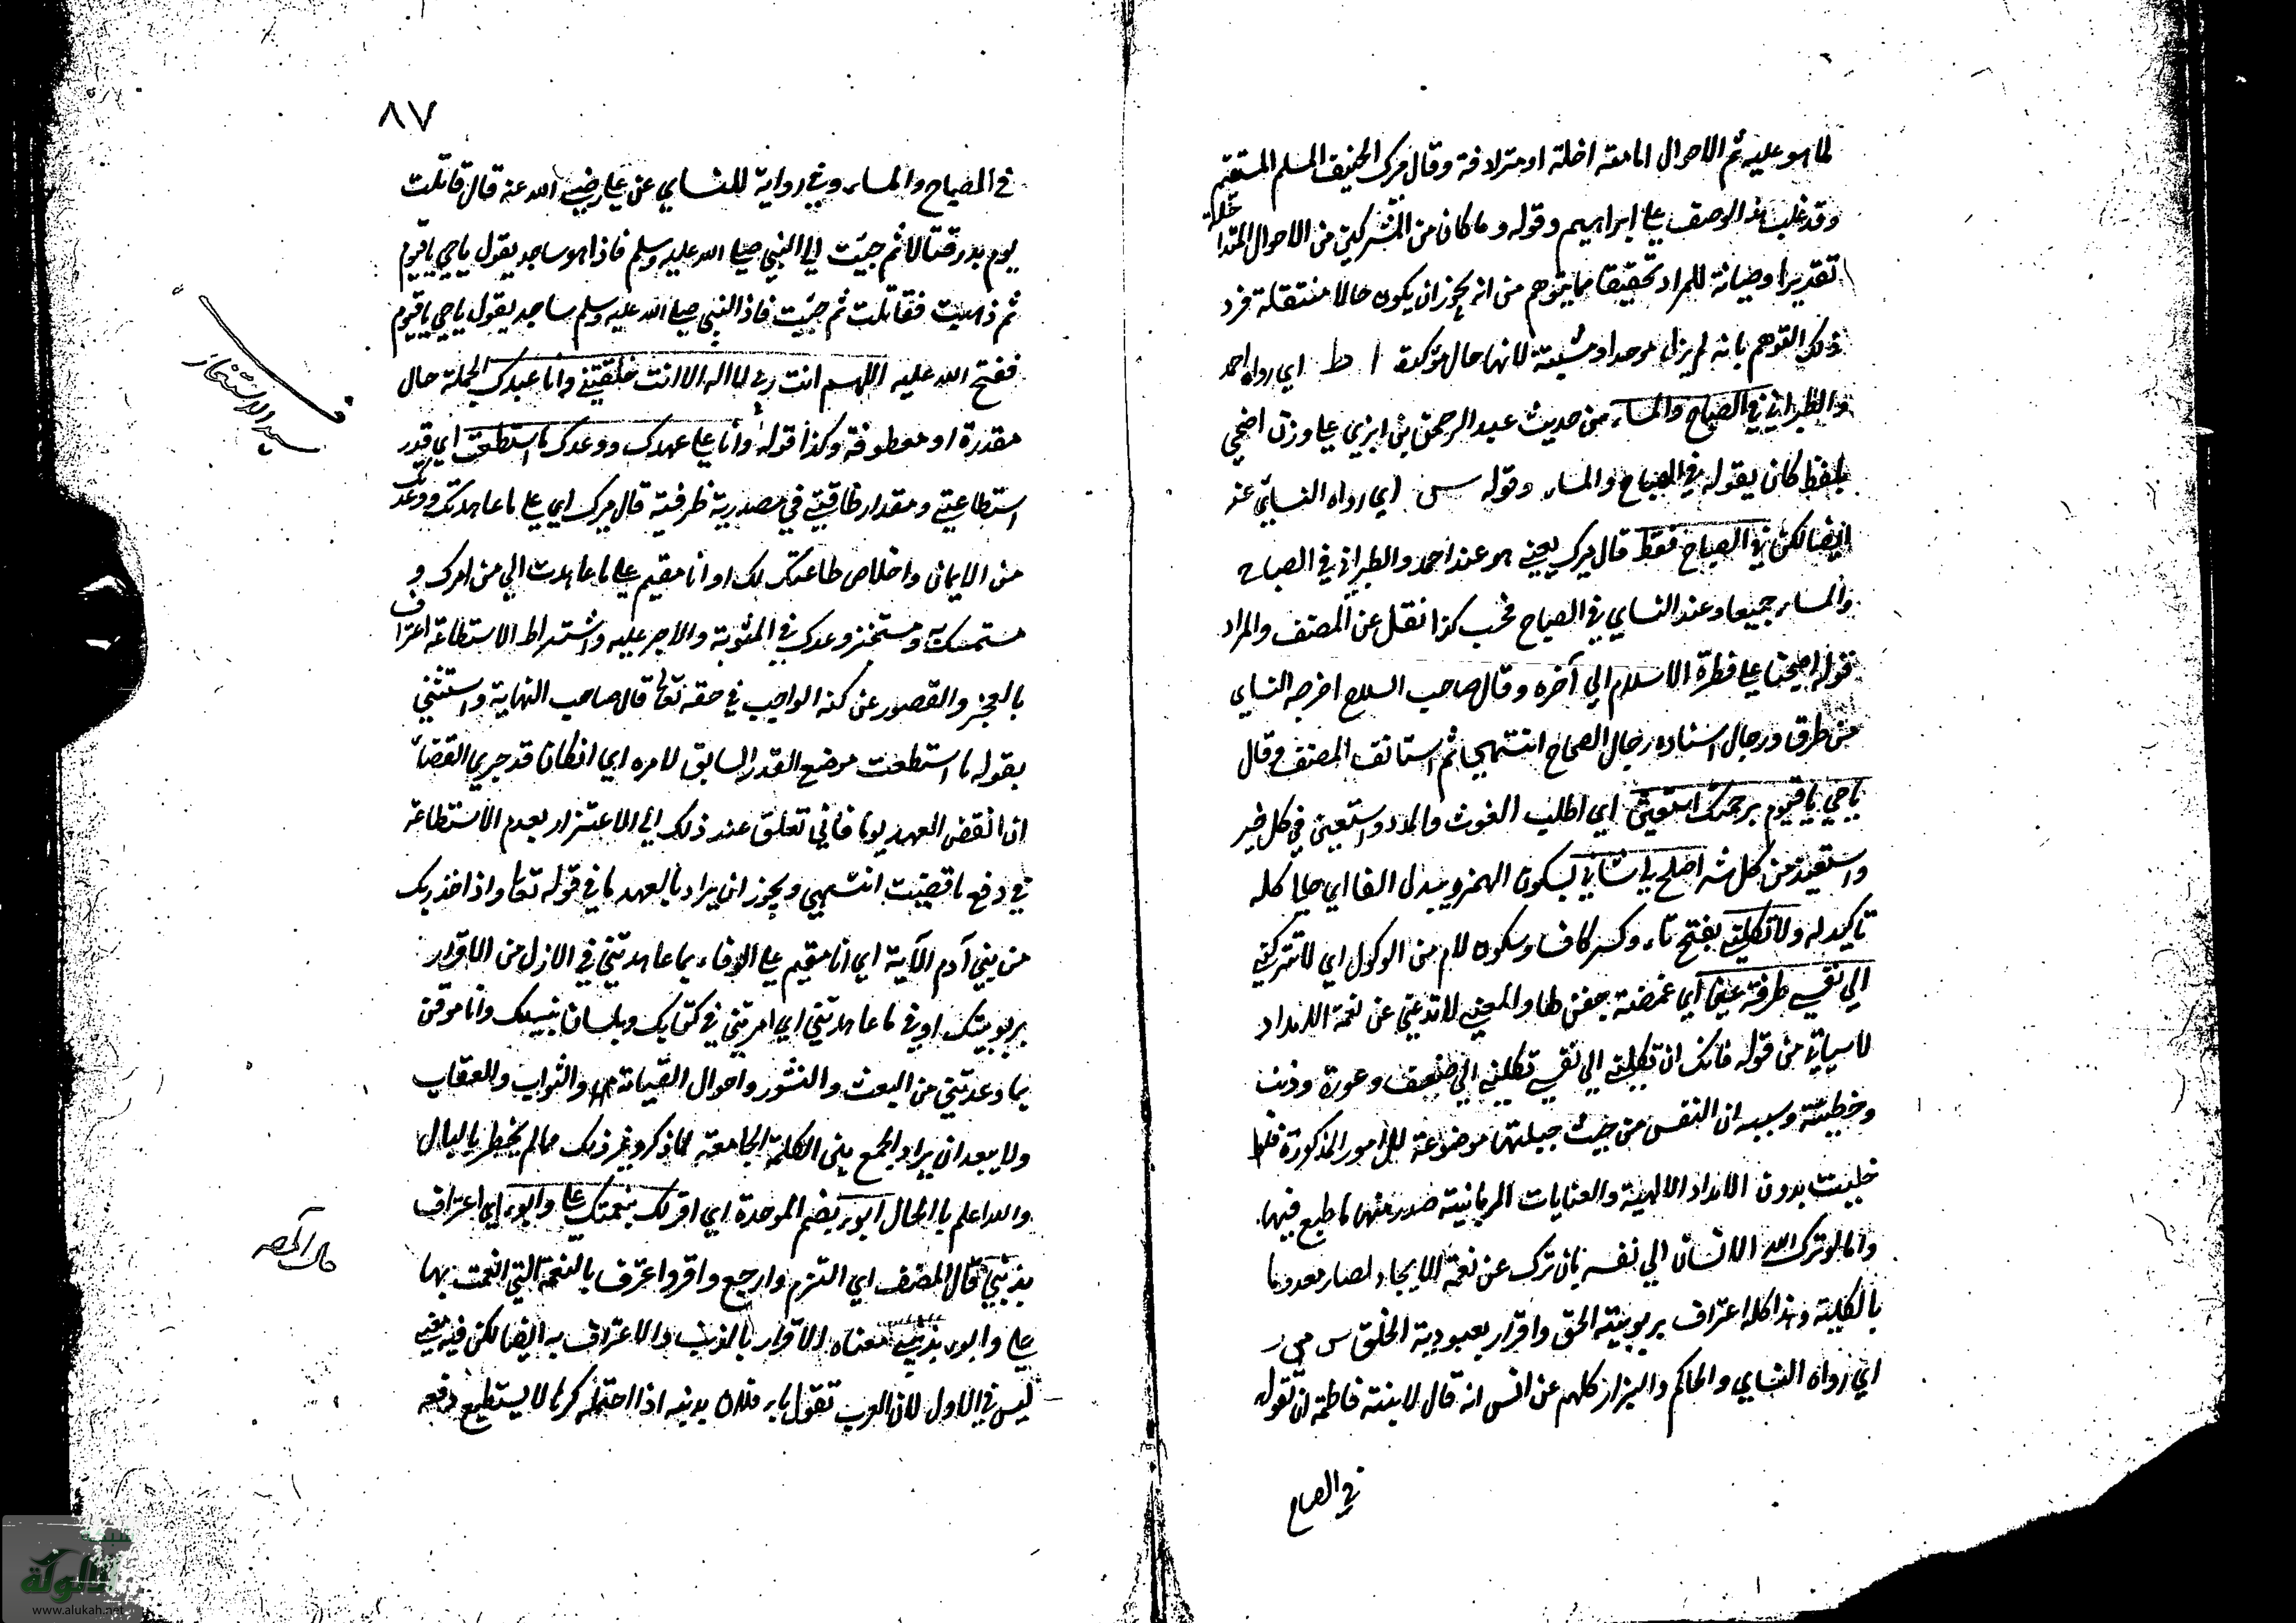 لما هو عليه ثم الاحوال اما متداخلة او مترادفة وقال ميرك الحنيف المسلم المستقيم
وقد غلب هذا الوصف على ابراهيم وقوله وما كان من المشركين من الاحوال المتداخلة
تقديرا وصيانة للمراد تحقيقا مما يتوهم من انه يجوز ان يكون حالا منتقلة فرد
ذلك التوهم بانه لم يزل موحدا ومثبتة لانها حال مؤكدة ا ط اي رواه احمد
والطبراني في الصباح والمساء من حديث عبد الرحمن بن ابزي على وزن اضحي
بلفظ كان يقوله في الصباح والمساء وقوله س اي رواه النسائي عنه
ايضا لكن في الصباح فقط قال ميرك يعني هو عند احمد والطبراني في الصباح
والمساء جميعا وعند النساي في الصباح فحسب كذا نقل عن المصنف والمراد
قوله اصبحنا على فطرة الاسلام الي آخره وقال صاحب السلاح اخرجه النساي
من طرق ورجال اسناده رجال الصحاح انتهى ثم استانف المصنف وقال
يا حي يا قيوم برحمتك استغيث اي اطلب الغوث والمدد واستعين في كل خير
واستعيذ من كل شر اصلح لي شاني بسكون الهمز ويبدل الفا اي حالي كله
تاكيد له ولا تكلني بفتح تاء وكسر كاف وسكون لام من الوكول اي لا تتركني
الي نفسي طرفة عين اي غمضة جفن لها والمعنى لا تدعني عن نعمة الامداد
لما سياتي من قوله فانك ان تكلني الي نفسي تكلني الي ضعف وعورة وذنب
وخطيئة وسببه ان النفس من حيث جبلتها موضوعة للامور المذكورة فلو
خليت بدون الامداد الالهية والعنايات الربانية صدر منها ما طبع فيها
واما لو ترك الله الانسان الي نفسه بان ترك عن نعمة الايجاد لصار معدوما
بالكلية وهذا كله اعتراف بربوبية الحق واقرار بعبودية الخلق س مس ر
اي رواه النساي والحاكم والبزار كلهم عن انس انه قال لابنته فاطمة ان تقوله
في الصباح
٨٧
في الصباح والمساء وفي رواية للنساي عن علي رضي الله عنه قال قاتلت
يوم بدر قتالا ثم جيت الي النبي صلى الله عليه وسلم فاذا هو ساجد يقول يا حي يا قيوم
ثم ذهبت فقاتلت ثم جيت فاذا النبي صلى الله عليه وسلم ساجد يقول يا حي يا قيوم
ففتح الله عليه اللهم انت ربي لا اله الا انت خلقتني وانا عبدك الجملة حال
مقدرة او معطوفة وكذا قوله وأنا على عهدك ووعدك ما استطعت اي قدر
استطاعتي ومقدار طاقتي في مصدرية ظرفية قال ميرك اي على ما عاهدتك ووعدتك
من الايمان واخلاص طاعتك لك او انا مقيم على ما عاهدت الي من امرك و
متمسك به ومستنجز وعدك في المثوبة والاجر عليه واشتراط الاستطاعة اعتراف
بالعجز والقصور عن كنه الواجب في حقه تعالى قال صاحب النهاية واستثني
بقوله ما استطعت موضع القدر السابق لامره اي ان كان قد جري القضاء
ان انقض العهد يوما فاني تعلق عند ذلك الي الاعتزار بعدم الاستطاعة
في دفع ما قضيت انتهى ويجوز ان يراد بالعهد ما في قوله تعالى واذ اخذ ربك
من بني آدم الآية اي انا مقيم على الوفاء بما عاهدتني في الازل من الاقرار
بربوبيتك او في ما عاهدتني اي امرتني في كتابك وبلسان نبيك وانا موقن
بما وعدتني من البعث والنشور واحوال القيامة والثواب والعقاب
ولا يبعد ان يراد الجمع بين الكلمة الجامعة لما ذكر وغير ذلك مما لم يخطر بالبال
والله اعلم بالحال ابوء بضم الموحدة اي اقر لك بنعمتك علي وابوء اي اعترف
بذنبي قال المصنف اي التزم وارجع واقر واعترف بالنعمة التي انعمت بها
علي وابوء بذنبي معناه الاقرار بالذنب والاعتراف به ايضا لكن فيه معني
ليس في الاول لان العرب تقول باء فلان بدينه اذا احتمله كرها لا يستطيع دفعه
سيد الاستغفار